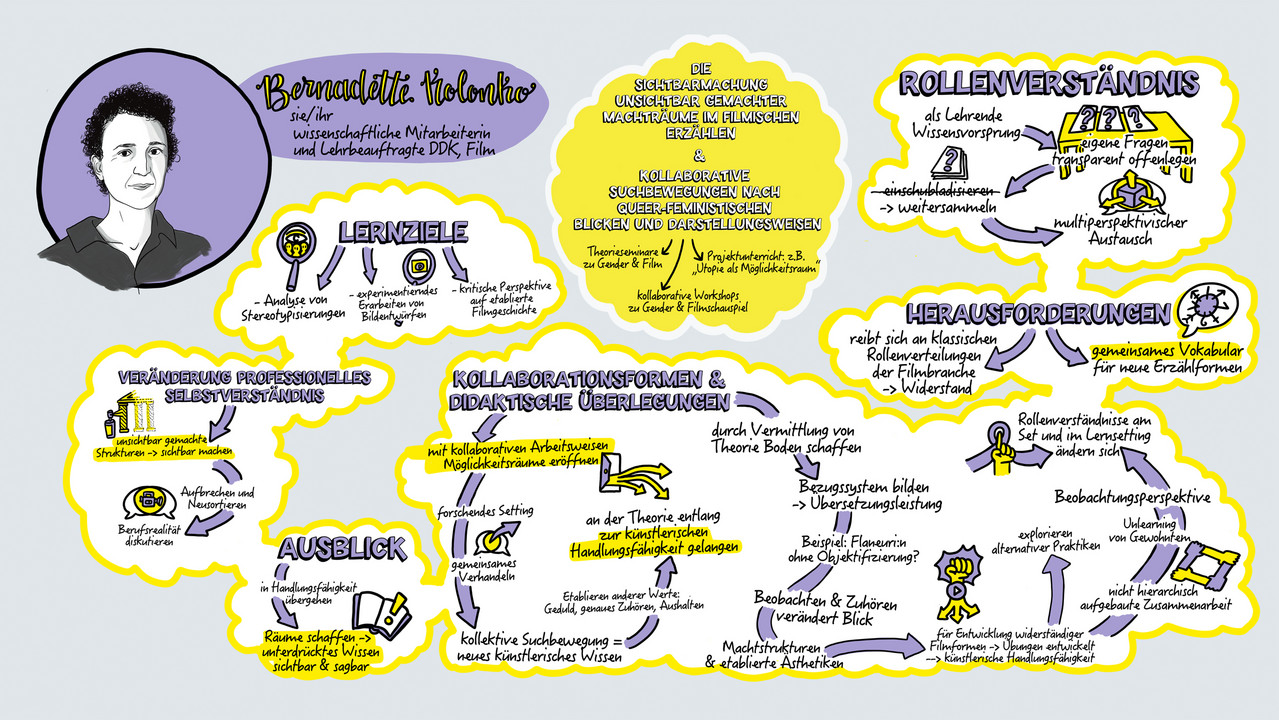 Bernadette Kolonko
sie/ihr
wissenschaftliche Mitarbeiterin
und Lehrbeauftragte DDK, Film
DIE
SICHTBARMACHUNG
UNSICHTBAR GEMACHTER
MACHTRÄUME IM FILMISCHEN
ERZÄHLEN
&
KOLLABORATIVE
SUCHBEWEGUNGEN NACH
QUEER-FEMINISTISCHEN
BLICKEN UND DARSTELLUNGSWEISEN
Theorieseminare
zu Gender & Film
Projektunterricht: z.B.
„Utopie als Möglichkeitsraum"
kollaborative Workshops
zu Gender & Filmschauspiel
ROLLENVERSTÄNDNIS
als Lehrende
Wissensvorsprung
? ? ?
eigene Fragen
transparent offenlegen
?
einschubladisieren
-> weitersammeln
multiperspektivischer
Austausch
LERNZIELE
- Analyse von
Stereotypisierungen
- experimentierndes
Erarbeiten von
Bildentwürfen
- kritische Perspektive
auf etablierte
Filmgeschichte
HERAUSFORDERUNGEN
reibt sich an klassischen
Rollenverteilungen
der Filmbranche
-> Widerstand
gemeinsames Vokabular
für neue Erzählformen
VERÄNDERUNG PROFESSIONELLES
SELBSTVERSTÄNDNIS
unsichtbar gemachte
Strukturen -> sichtbar machen
Aufbrechen und
Neusortieren
Berufsrealität
diskutieren
AUSBLICK
in Handlungsfähigkeit
übergehen
Räume schaffen ->
unterdrücktes Wissen
sichtbar & sagbar
KOLLABORATIONSFORMEN &
DIDAKTISCHE ÜBERLEGUNGEN
mit kollaborativen Arbeitsweisen
Möglichkeitsräume eröffnen
forschendes Setting
gemeinsames
Verhandeln
kollektive Suchbewegung =
neues künstlerisches Wissen
Etablieren anderer Werte:
Geduld, genaues Zuhören, Aushalten
an der Theorie entlang
zur künstlerischen
Handlungsfähigkeit gelangen
durch Vermittlung von
Theorie Boden schaffen
Bezugssystem bilden
-> Übersetzungsleistung
Beispiel: Flaneur:in
ohne Objektifizierung?
Beobachten & Zuhören
verändert Blick
Machtstrukturen
& etablierte Ästhetiken
für Entwicklung widerständiger
Filmformen -> Übungen entwickelt
--> künstlerische Handlungsfähigkeit
explorieren
alternativer Praktiken
nicht hierarchisch
aufgebaute Zusammenarbeit
Unlearning
von Gewohntem
Beobachtungsperspektive
Rollenverständnisse am
Set und im Lernsetting
ändern sich